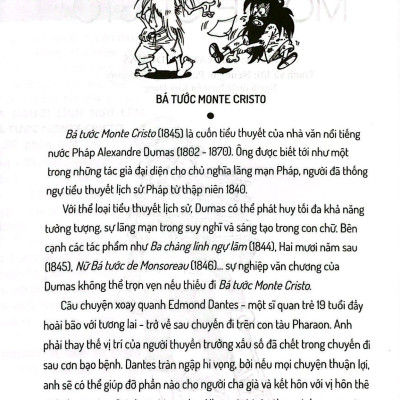 BÁ TƯỚC MONTE CRISTO
Bá tước Monte Cristo (1845) là cuốn tiểu thuyết của nhà văn nổi tiếng
nước Pháp Alexandre Dumas (1802 - 1870). Ông được biết tới như một
trong những tác giả đại diện cho chủ nghĩa lãng mạn Pháp, người đã thống
ngự tiểu thuyết lịch sử Pháp từ thập niên 1840.
Với thể loại tiểu thuyết lịch sử, Dumas có thể phát huy tối đa khả năng
tưởng tượng, sự lãng mạn trong suy nghĩ và sáng tạo trong con chữ. Bên
cạnh các tác phẩm như Ba chàng lính ngự lâm (1844), Hai mươi năm sau
(1845), Nữ Bá tước de Monsoreau (1846)... sự nghiệp văn chương của
Dumas không thể trọn vẹn nếu thiếu đi Bá tước Monte Cristo.
Câu chuyện xoay quanh Edmond Dantes - một sĩ quan trẻ 19 tuổi đầy
hoài bão với tương lai - trở về sau chuyến đi trên con tàu Pharaon. Anh
phải thay thế vị trí của người thuyền trưởng xấu số đã chết trong chuyến đi
sau cơn bạo bệnh. Dantes tràn ngập hi vọng, bởi nếu mọi chuyện thuận lợi,
anh sẽ có thể giúp đỡ phần nào cho người cha già và kết hôn với vị hôn thê